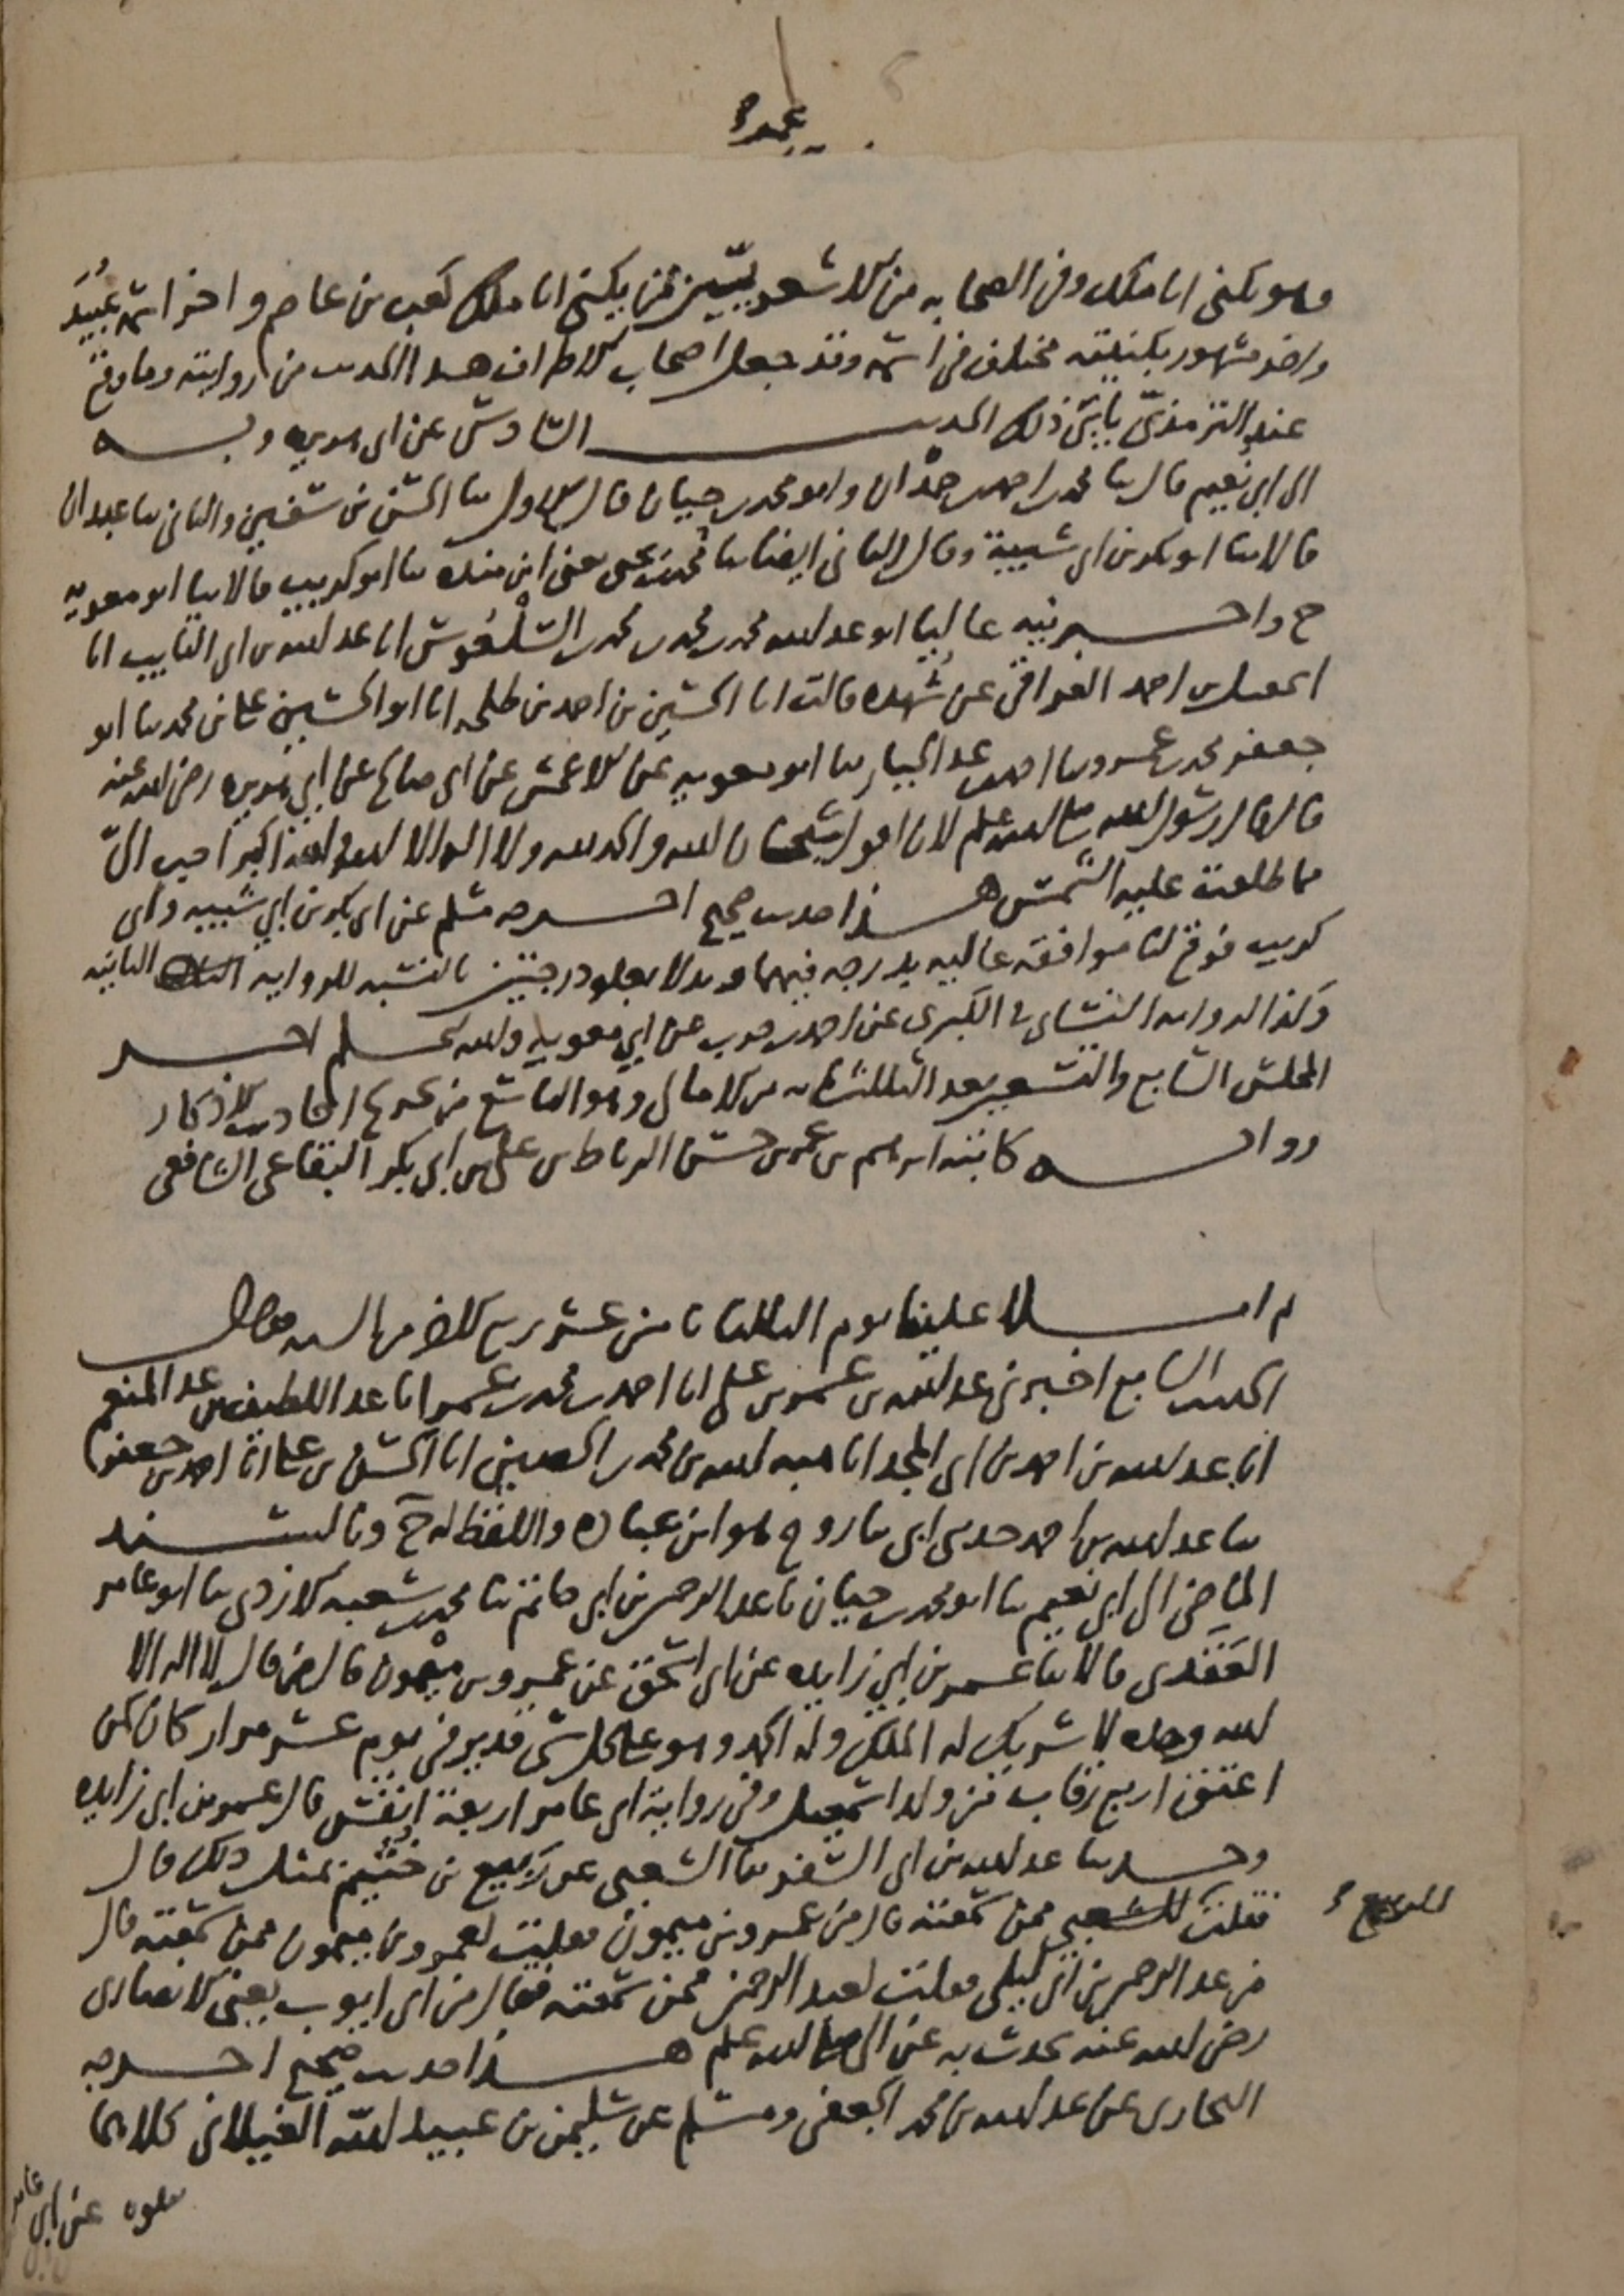 وهو يكنى ابا ملك وفي الصحابه من الاشعريين ممن يكنى ابا ملك كعب بن عاصم واخر اسمه عبيد
واخر مشهور بكنيته مختلف في اسمه وقد جعل اصحاب الاطراف هذا الحديث من روايته وما وقع
عند الترمذي يابى ذلك الحديث السادس عن ابي هريره وبه
الى ابي نعيم قال ثنا محمد بن احمد بن حمدان وابو محمد بن حيان قال الاول ثنا الحسن بن سفين والثاني ثنا عبدان
قالا ثنا ابو بكر بن ابي شيبة وقال الثاني ايضا ثنا محمد بن يحيى يعني ابن منده ثنا ابو كريب قالا ثنا ابو معويه
ح واخبرنيه عاليا ابو عبد الله محمد بن محمد بن محمد السلعوس انا عبد الله بن ابي التايب انا
اسمعيل بن احمد العراقي عن شهده قالت انا الحسين بن احمد بن طلحه انا ابو الحسين علي بن محمد ثنا ابو
جعفر محمد بن عمرو ثنا احمد بن عبد الجبار ثنا ابو معويه عن الاعمش عن ابي صالح عن ابي هريره رضي الله عنه
قال قال رسول الله صلى الله عليه وسلم لان اقول سبحان الله والحمد لله ولا اله الا الله والله اكبر احب الي
مما طلعت عليه الشمس هذا حديث صحيح اخرجه مسلم عن ابي بكر بن ابي شيبه وابي
كريب فوقع لنا موافقه عاليه بدرجه فيهما وبدلا بعلو درجتين بالنسبه للروايه الثانيه
وكذا لروايه النسائي في الكبرى عن احمد بن حرب عن ابي معويه والله اعلم اخر
المجلس السابع والتسعين بعد الثلثمائه من الامالي وهو السابع من تخريج احاديث الاذكار
روايه كاتبه ابرهيم بن عمر بن حسن الرباط بن علي بن ابي بكر البقاعي الشافعي
ثم املا علينا يوم الثلثا ثامن عشر ربيع الاخر من السنه فقال
الحديث السابع اخبرني عبد الله بن عمر بن علي انا احمد بن محمد بن عمر انا عبد اللطيف بن عبد المنعم
انا عبد الله بن احمد بن ابي المجد انا هبه الله بن محمد بن الحصين انا الحسن بن علي انا احمد بن جعفر
ثنا عبد الله بن احمد حدثني ابي ثنا روح هو ابن عباده واللفظ له ح وبالسند
الماضي الى ابي نعيم ثنا ابو محمد بن حيان ثنا عبد الرحمن بن ابي حاتم ثنا محمد بن شعبه الازدي ثنا ابو عامر
العقدي قالا ثنا عمر بن ابي زايده عن ابي اسحق عن عمرو بن ميمون قال من قال لا اله الا
الله وحده لا شريك له الملك وله الحمد وهو على كل شي قدير في يوم عشر مرار كان كمن
اعتق اربع رقاب من ولد اسمعيل وفي رواية ابي عامر اربعة انفس قال عمر بن ابي زايده
وحدثنا عبد الله بن ابي السفر ثنا الشعبي عن ربيع بن خثيم بمثل ذلك قال
فقلت للشعبي ممن سمعته قال من عمرو بن ميمون فقلت لعمرو بن ميمون ممن سمعته قال
للربيع
من عبد الرحمن بن ابي ليلى فقلت لعبد الرحمن ممن سمعته فقال من ابي ايوب يعني الانصاري
رضي الله عنه يحدث به عن النبي صلى الله عليه وسلم هذا حديث صحيح اخرجه
البخاري عن عبد الله بن محمد الجعفي ومسلم عن سليمن بن عبيد الله الغيلاني كلاهما
عن ابي عامر